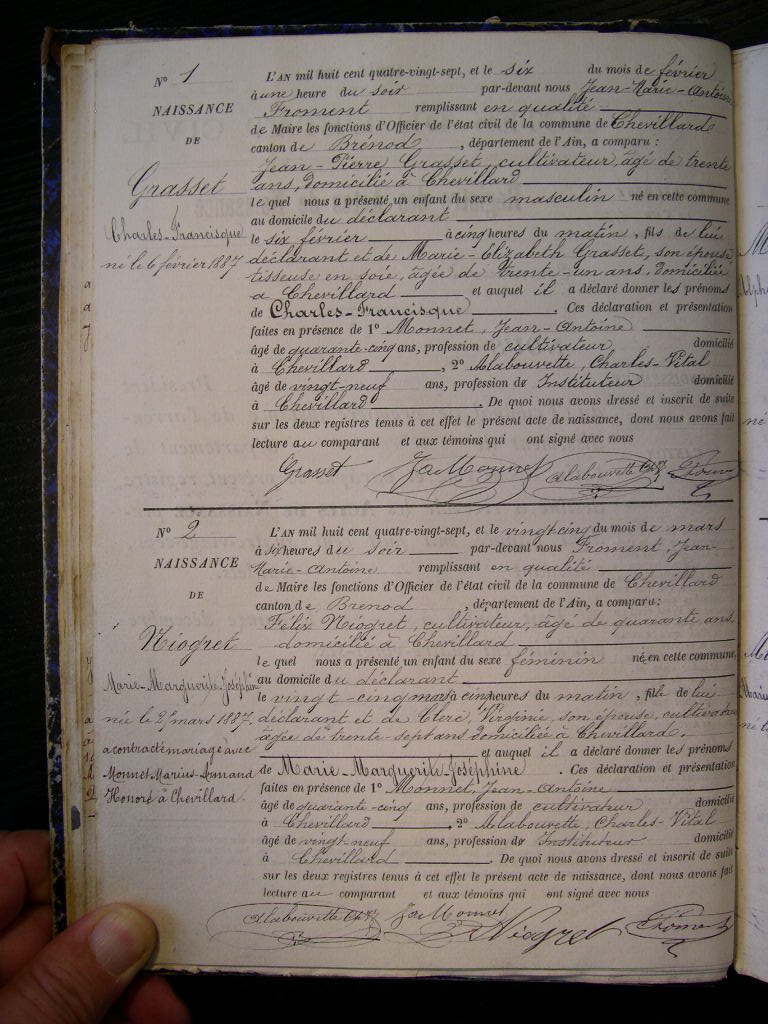 N° 1
NAISSANCE
DE
Grasset
Charles-Francisque
né le 6 février 1887
L'AN mil huit cent quatre-vingt-sept, et le six du mois de février
à une heure du soir par-devant nous Jean-Marie-Antoine
Froment remplissant en qualité
de Maire les fonctions d'Officier de l'état civil de la commune de Chevillard
canton de Brénod, département de l'Ain, a comparu :
Jean-Pierre Grasset, cultivateur, âgé de trente
ans, domicilié à Chevillard
le quel nous a présenté un enfant du sexe masculin né en cette commune
au domicile du déclarant
le six février à cinq heures du matin, fils de lui
déclarant et de Marie-Elizabeth Grasset, son épouse
tisseuse en soie, âgée de trente-un ans, domiciliée
à Chevillard et auquel il a déclaré donner les prénoms
de Charles-Francisque. Ces déclaration et présentation
faites en présence de 1° Monnet, Jean-Antoine
âgé de quarante-cinq ans, profession de cultivateur, domicilié
à Chevillard, 2° Alabouvette, Charles-Vital
âgé de vingt-neuf ans, profession de Instituteur domicilié
à Chevillard. De quoi nous avons dressé et inscrit de suite
sur les deux registres tenus à cet effet le présent acte de naissance, dont nous avons fait
lecture au comparant et aux témoins qui ont signé avec nous
Grasset JA Monnet Alabouvette Ch. V. Froment
N° 2
NAISSANCE
DE
Niogret
Marie-Marguerite-Joséphine
née le 25 mars 1887.
a contracté mariage avec
Monnet Marius Armand
Honoré à Chevillard.
L'AN mil huit cent quatre-vingt-sept, et le vingt cinq du mois de mars
à six heures du soir par-devant nous Froment, Jean-
Marie-Antoine remplissant en qualité
de Maire les fonctions d'Officier de l'état civil de la commune de Chevillard
canton de Brenod, département de l'Ain, a comparu :
Félix Niogret, cultivateur, âgé de quarante ans
domicilié à Chevillard
le quel nous a présenté un enfant du sexe féminin né en cette commune
au domicile du déclarant
le vingt-cinq mars à cinq heures du matin, fille de lui
déclarant et de Clerc, Virginie, son épouse, cultivatrice
âgée de trente-sept ans domiciliée à Chevillard.
et auquel il a déclaré donner les prénoms
de Marie-Marguerite-Joséphine. Ces déclaration et présentation
faites en présence de 1° Monnet, Jean-Antoine
âgé de quarante-cinq ans, profession de cultivateur domicilié
à Chevillard, 2° Alabouvette, Charles-Vital
âgé de vingt-neuf ans, profession de Instituteur domicilié
à Chevillard. De quoi nous avons dressé et inscrit de suite
sur les deux registres tenus à cet effet le présent acte de naissance, dont nous avons fait
lecture au comparant et aux témoins qui ont signé avec nous
Alabouvette Ch. V. JA Monnet Niogret Froment